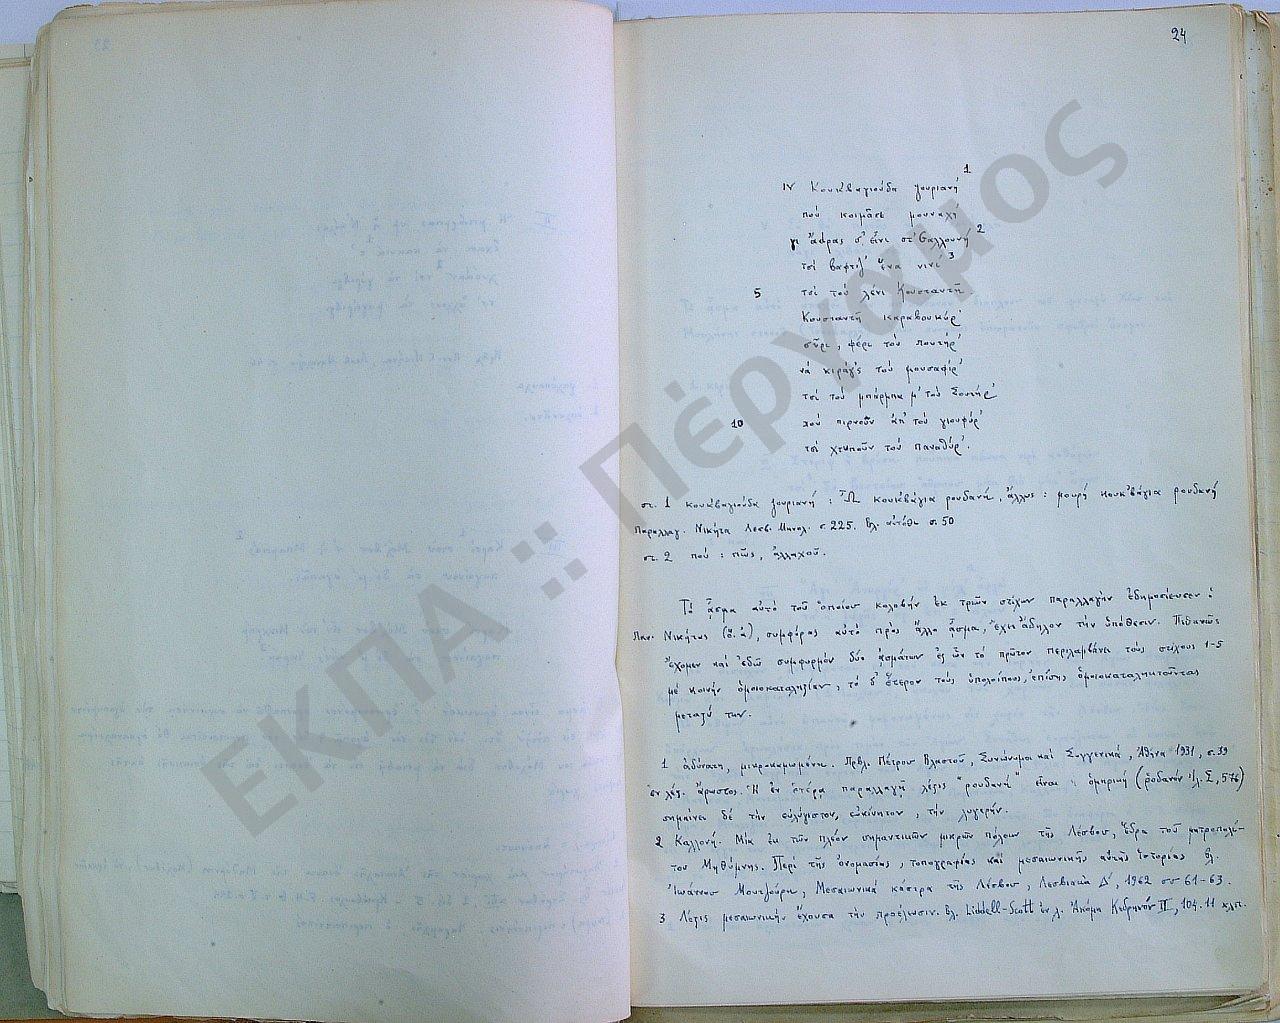 24
IV Κουκβαγιούδα γουριανή¹
πού κοιμᾶσι μουναχή
γι ἄδρας σ' εἶνι στ' Gαλλουνή²
τσί βαφτίζ' ἕνα νινί³
5 τσί τού λένι Κουσταντή
Κουσταντή καραβουκύρ'
σῦρι, φέρι τού πουτήρ'
νά κιράγ'ς τού μουσαφίρ'
τσί τού μπάρμπα μ' τού Σουτήρ'
10 πού πιρνοῦν ἀπ' τού γιουφύρ'
τσί χτυποῦν τού παναθύρ'.
στ. 1 κουκβαγιούδα γουριανή : Ὦ κουκβάγια ρουδανή, ἄλλως : μουρή κουκβάγια ρουδανή
Παραλλαγ. Νικήτα Λεσβ. Μηνολ. σ. 225. Βλ. αὐτόθι σ. 50
στ. 2 πού : πῶς, ἀλλαχοῦ.
Τό ᾆσμα αὐτό τοῦ ὁποίου κολοβήν ἐκ τριῶν στίχων παραλλαγήν ἐδημοσίευσεν ὁ
Παν. Νικήτας (ὅ.ἀ), συμφύρας αὐτό πρός ἄλλο ᾆσμα, ἔχει ἄδηλον τήν ὑπόθεσιν. Πιθανῶς
ἔχομεν καί ἐδῶ συμφυρμόν δύο ᾀσμάτων ἐξ ὧν τό πρῶτον περιλαμβάνει τούς στίχους 1-5
μέ κοινήν ὁμοιοκαταληξίαν, τό δ' ἕτερον τούς ὑπολοίπους, ἐπίσης ὁμοιοκαταληκτοῦντας
μεταξύ των.
1 ἀδύνατη, μικροκαμωμένη. Πρβλ. Πέτρου Βλαστοῦ, Συνώνυμα καί Συγγενικά, Ἀθήνα 1931, σ. 39
ἐν λέξ. ἄρωστος. Ἡ ἐν ἑτέρᾳ παραλλαγῇ λέξις "ρουδανή" εἶναι ὁμηρική (ῥοδανόν Ἰλ. Σ, 576)
σημαίνει δέ τήν εὐλύγιστον, εὐκίνητον, τήν λυγερήν.
2 Καλλονή. Μία ἐκ τῶν πλέον σημαντικῶν μικρῶν πόλεων τῆς Λέσβου, ἕδρα τοῦ μητροπολί-
του Μηθύμνης. Περί τῆς ὀνομασίας, τοπογραφίας καί μεσαιωνικῆς αὐτῆς ἱστορίας βλ.
Ἰωάννου Μουτζούρη, Μεσαιωνικά κάστρα τῆς Λέσβου, Λεσβιακά Δ', 1962 σσ 61-63.
3 Λέξις μεσαιωνικήν ἔχουσα τήν προέλευσιν. Βλ. Liddell-Scott ἐν λ. Ἀκόμα Κεδρηνόν II, 104. 11 κλπ.
ΕΚΠΑ :: Πέργαμος